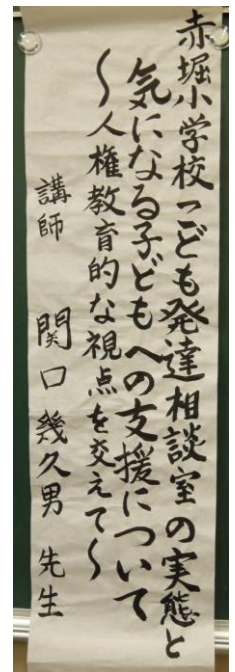 赤堀小学校こども発達相談室の実態と
気になる子どもへの支援について
〜人権教育的な視点を交えて〜
講師 関口幾久男 先生